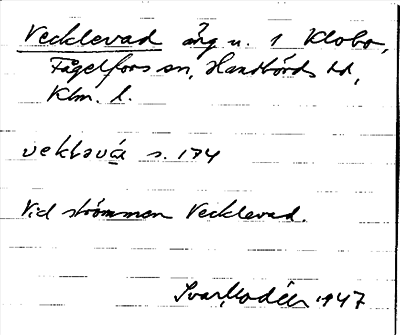 Vecklevad äng u. 1 Klobo,
Fågelfors sn, Handbörds hd,
Klm. l.
veklavá s. 174
Vid strömmen Vecklevad.
1947